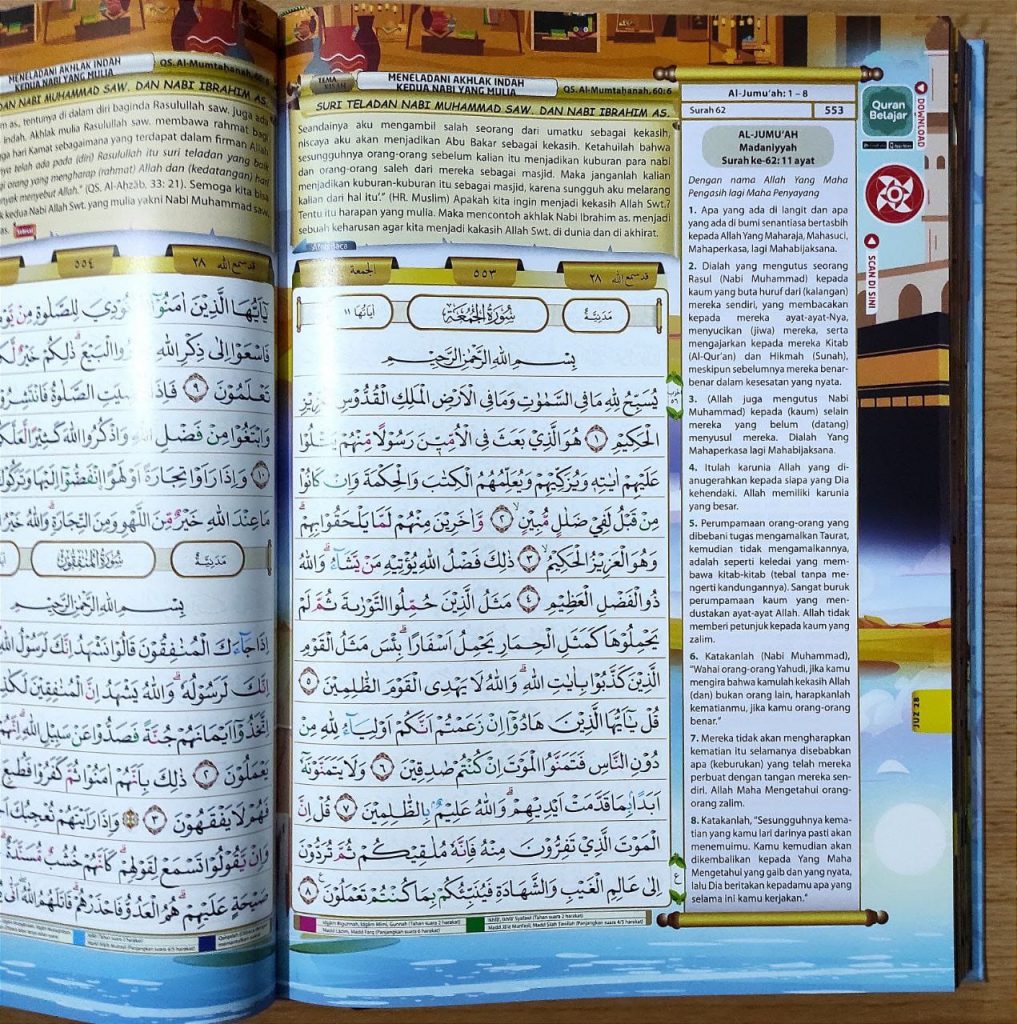 TEMA KISAH
MENELADANI AKHLAK INDAH
KEDUA NABI YANG MULIA
QS. Al-Mumtahanah, 60: 6
SURI TELADAN NABI MUHAMMAD SAW. DAN NABI IBRAHIM AS.
Seandainya aku mengambil salah seorang dari umatku sebagai kekasih,
niscaya aku akan menjadikan Abu Bakar sebagai kekasih. Ketahuilah bahwa
sesungguhnya orang-orang sebelum kalian itu menjadikan kuburan para nabi
dan orang-orang saleh dari mereka sebagai masjid. Maka janganlah kalian
menjadikan kuburan-kuburan itu sebagai masjid, karena sungguh aku melarang
kalian dari hal itu'." (HR. Muslim) Apakah kita ingin menjadi kekasih Allah Swt.?
Tentu itu harapan yang mulia. Maka mencontoh akhlak Nabi Ibrahim as. menjadi
sebuah keharusan agar kita menjadi kakasih Allah Swt. di dunia dan di akhirat.
قد سمع الله ٢٨
٥٥٣
الجمعة
مَدَنِيَّة
سُوْرَةُ الْجُمُعَةِ
اٰيَاتُهَا ١١
بِسْمِ اللّٰهِ الرَّحْمٰنِ الرَّحِيْمِ
يُسَبِّحُ لِلّٰهِ مَا فِى السَّمٰوٰتِ وَمَا فِى الْاَرْضِ الْمَلِكِ الْقُدُّوْسِ الْعَزِيْزِ
الْحَكِيْمِ ١ هُوَ الَّذِيْ بَعَثَ فِى الْاُمِّيّٖنَ رَسُوْلًا مِّنْهُمْ يَتْلُوْا
عَلَيْهِمْ اٰيٰتِهٖ وَيُزَكِّيْهِمْ وَيُعَلِّمُهُمُ الْكِتٰبَ وَالْحِكْمَةَ وَاِنْ كَانُوْا
مِنْ قَبْلُ لَفِيْ ضَلٰلٍ مُّبِيْنٍۙ ٢ وَّاٰخَرِيْنَ مِنْهُمْ لَمَّا يَلْحَقُوْا بِهِمْۗ
وَهُوَ الْعَزِيْزُ الْحَكِيْمُۙ ٣ ذٰلِكَ فَضْلُ اللّٰهِ يُؤْتِيْهِ مَنْ يَّشَاۤءُۗ وَاللّٰهُ
ذُو الْفَضْلِ الْعَظِيْمِ ٤ مَثَلُ الَّذِيْنَ حُمِّلُوا التَّوْرٰىةَ ثُمَّ لَمْ
يَحْمِلُوْهَا كَمَثَلِ الْحِمَارِ يَحْمِلُ اَسْفَارًاۗ بِئْسَ مَثَلُ الْقَوْمِ
الَّذِيْنَ كَذَّبُوْا بِاٰيٰتِ اللّٰهِۗ وَاللّٰهُ لَا يَهْدِى الْقَوْمَ الظّٰلِمِيْنَ ٥
قُلْ يٰٓاَيُّهَا الَّذِيْنَ هَادُوْٓا اِنْ زَعَمْتُمْ اَنَّكُمْ اَوْلِيَاۤءُ لِلّٰهِ مِنْ
دُوْنِ النَّاسِ فَتَمَنَّوُا الْمَوْتَ اِنْ كُنْتُمْ صٰدِقِيْنَ ٦ وَلَا يَتَمَنَّوْنَهٗٓ
اَبَدًاۢ بِمَا قَدَّمَتْ اَيْدِيْهِمْۗ وَاللّٰهُ عَلِيْمٌۢ بِالظّٰلِمِيْنَ ٧ قُلْ اِنَّ
الْمَوْتَ الَّذِيْ تَفِرُّوْنَ مِنْهُ فَاِنَّهٗ مُلٰقِيْكُمْ ثُمَّ تُرَدُّوْنَ
اِلٰى عَالِمِ الْغَيْبِ وَالشَّهَادَةِ فَيُنَبِّئُكُمْ بِمَا كُنْتُمْ تَعْمَلُوْنَ ٨
ع
Al-Jumu'ah: 1 – 8
Surah 62
553
AL-JUMU'AH
Madaniyyah
Surah ke-62: 11 ayat
Dengan nama Allah Yang Maha
Pengasih lagi Maha Penyayang
1. Apa yang ada di langit dan apa
yang ada di bumi senantiasa bertasbih
kepada Allah Yang Maharaja, Mahasuci,
Mahaperkasa, lagi Mahabijaksana.
2. Dialah yang mengutus seorang
Rasul (Nabi Muhammad) kepada
kaum yang buta huruf dari (kalangan)
mereka sendiri, yang membacakan
kepada mereka ayat-ayat-Nya,
menyucikan (jiwa) mereka, serta
mengajarkan kepada mereka Kitab
(Al-Qur'an) dan Hikmah (Sunah),
meskipun sebelumnya mereka benar-
benar dalam kesesatan yang nyata.
3. (Allah juga mengutus Nabi
Muhammad) kepada (kaum) selain
mereka yang belum (datang)
menyusul mereka. Dialah Yang
Mahaperkasa lagi Mahabijaksana.
4. Itulah karunia Allah yang di-
anugerahkan kepada siapa yang Dia
kehendaki. Allah memiliki karunia
yang besar.
5. Perumpamaan orang-orang yang
dibebani tugas mengamalkan Taurat,
kemudian tidak mengamalkannya,
adalah seperti keledai yang mem-
bawa kitab-kitab (tebal tanpa me-
ngerti kandungannya). Sangat buruk
perumpamaan kaum yang men-
dustakan ayat-ayat Allah. Allah tidak
memberi petunjuk kepada kaum yang
zalim.
6. Katakanlah (Nabi Muhammad),
"Wahai orang-orang Yahudi, jika kamu
mengira bahwa kamulah kekasih Allah
(dan) bukan orang lain, harapkanlah
kematianmu, jika kamu orang-orang
benar."
7. Mereka tidak akan mengharapkan
kematian itu selamanya disebabkan
apa (keburukan) yang telah mereka
perbuat dengan tangan mereka sen-
diri. Allah Maha Mengetahui orang-
orang zalim.
8. Katakanlah, "Sesungguhnya kema-
tian yang kamu lari darinya pasti akan
menemuimu. Kamu kemudian akan
dikembalikan kepada Yang Maha
Mengetahui yang gaib dan yang nyata,
lalu Dia beritakan kepadamu apa yang
selama ini kamu kerjakan."
Quran
Belajar
DOWNLOAD
SCAN DI SINI
JUZ 28
MENELADANI AKHLAK INDAH
KEDUA NABI YANG MULIA
QS. Al-Mumtahanah, 60: 6
DAN NABI MUHAMMAD SAW. DAN NABI IBRAHIM AS.
as., tentunya di dalam diri baginda Rasulullah saw. juga ada
indah. Akhlak mulia Rasulullah saw. membawa rahmat bagi
hari Kamat sebagaimana yang terdapat dalam firman Allah
telah ada pada (diri) Rasulullah itu suri teladan yang baik
orang yang mengharap (rahmat) Allah dan (kedatangan) hari
menyebut Allah." (QS. Al-Ahzāb, 33: 21). Semoga kita bisa
kedua Nabi Allah Swt. yang mulia yakni Nabi Muhammad saw.
as.
قد سمع الله ٢٨
٥٥٤
يٰٓاَيُّهَا الَّذِيْنَ اٰمَنُوْٓا نُوْدِيَ لِلصَّلٰوةِ مِنْ
فَاسْعَوْا اِلٰى ذِكْرِ اللّٰهِ وَذَرُوا الْبَيْعَۗ ذٰلِكُمْ خَيْرٌ
تَعْلَمُوْنَ ٩ فَاِذَا قُضِيَتِ الصَّلٰوةُ فَانْتَشِرُوْا
وَابْتَغُوْا مِنْ فَضْلِ اللّٰهِ وَاذْكُرُوا اللّٰهَ كَثِيْرًا
١٠ وَاِذَا رَاَوْا تِجَارَةً اَوْ لَهْوًا ۨانْفَضُّوْٓا اِلَيْهَا وَتَرَكُوْكَ
مَا عِنْدَ اللّٰهِ خَيْرٌ مِّنَ اللَّهْوِ وَمِنَ التِّجَارَةِۗ وَاللّٰهُ خَيْرُ
مَدَنِيَّة
سُوْرَةُ الْمُنٰفِقُوْنَ
بِسْمِ اللّٰهِ الرَّحْمٰنِ الرَّحِيْمِ
اِذَا جَاۤءَكَ الْمُنٰفِقُوْنَ قَالُوْا نَشْهَدُ اِنَّكَ لَرَسُوْلُ
اِنَّكَ لَرَسُوْلُهٗۗ وَاللّٰهُ يَشْهَدُ اِنَّ الْمُنٰفِقِيْنَ
اِتَّخَذُوْٓا اَيْمَانَهُمْ جُنَّةً فَصَدُّوْا عَنْ سَبِيْلِ اللّٰهِۗ اِنَّهُمْ
يَعْمَلُوْنَ ٢ ذٰلِكَ بِاَنَّهُمْ اٰمَنُوْا ثُمَّ كَفَرُوْا فَطُبِعَ
فَهُمْ لَا يَفْقَهُوْنَ ٣ وَاِذَا رَاَيْتَهُمْ تُعْجِبُكَ
وَاِنْ يَّقُوْلُوْا تَسْمَعْ لِقَوْلِهِمْۗ كَاَنَّهُمْ خُشُبٌ مُّسَنَّدَةٌۗ
صَيْحَةٍ عَلَيْهِمْۗ هُمُ الْعَدُوُّ فَاحْذَرْهُمْۗ قَاتَلَهُمُ اللّٰهُۖ اَنّٰى